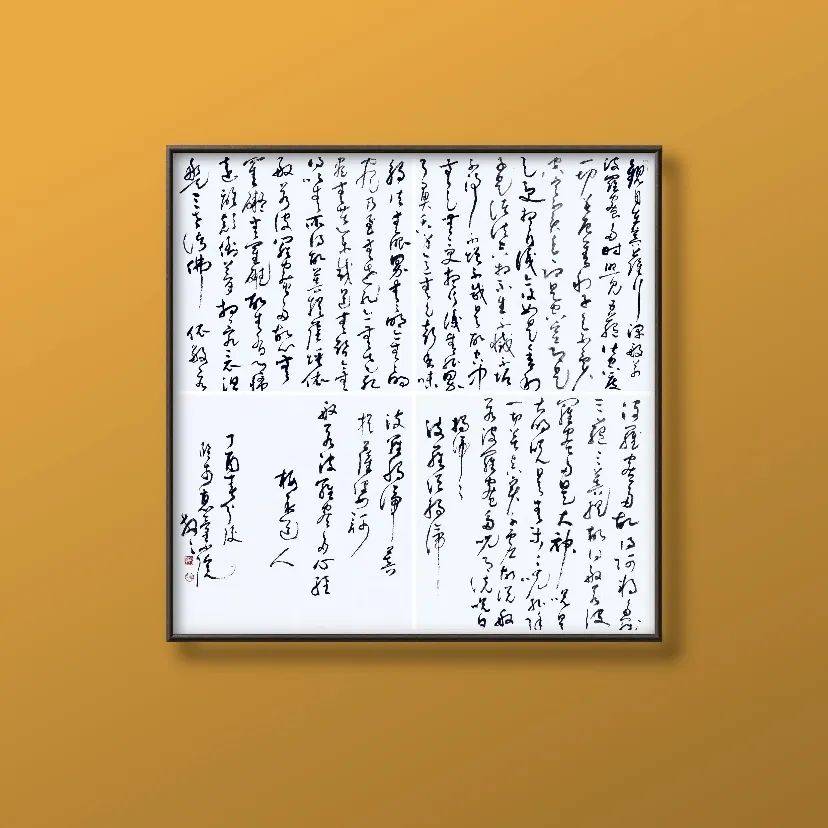 觀自在菩薩行深般若
波羅蜜多時照見五蘊皆空度
一切苦厄舍利子色不異
空空不異色色即是空空即是
色受想行識亦復如是舍利
子是諸法空相不生不滅不垢
不淨不增不減是故空中
無色無受想行識無眼耳
鼻舌身意無色聲香味
觸法無眼界無無明亦無無明
盡乃至無老死亦無老死
盡無苦集滅道無智亦無
得以無所得故菩提薩埵依
般若波羅蜜多故心無
罣礙無罣礙故無有恐怖
遠離顛倒夢想究竟涅
槃三世諸佛 依般若
波羅蜜多故得阿耨多羅
三藐三菩提故知般若波
羅蜜多是大神咒是
大明咒是無上咒能除
一切苦真實不虛故說般
若波羅蜜多咒即說咒曰
揭諦
波羅揭諦
波羅揭諦 菩
提薩婆訶
般若波羅蜜多心經
道人
丁酉